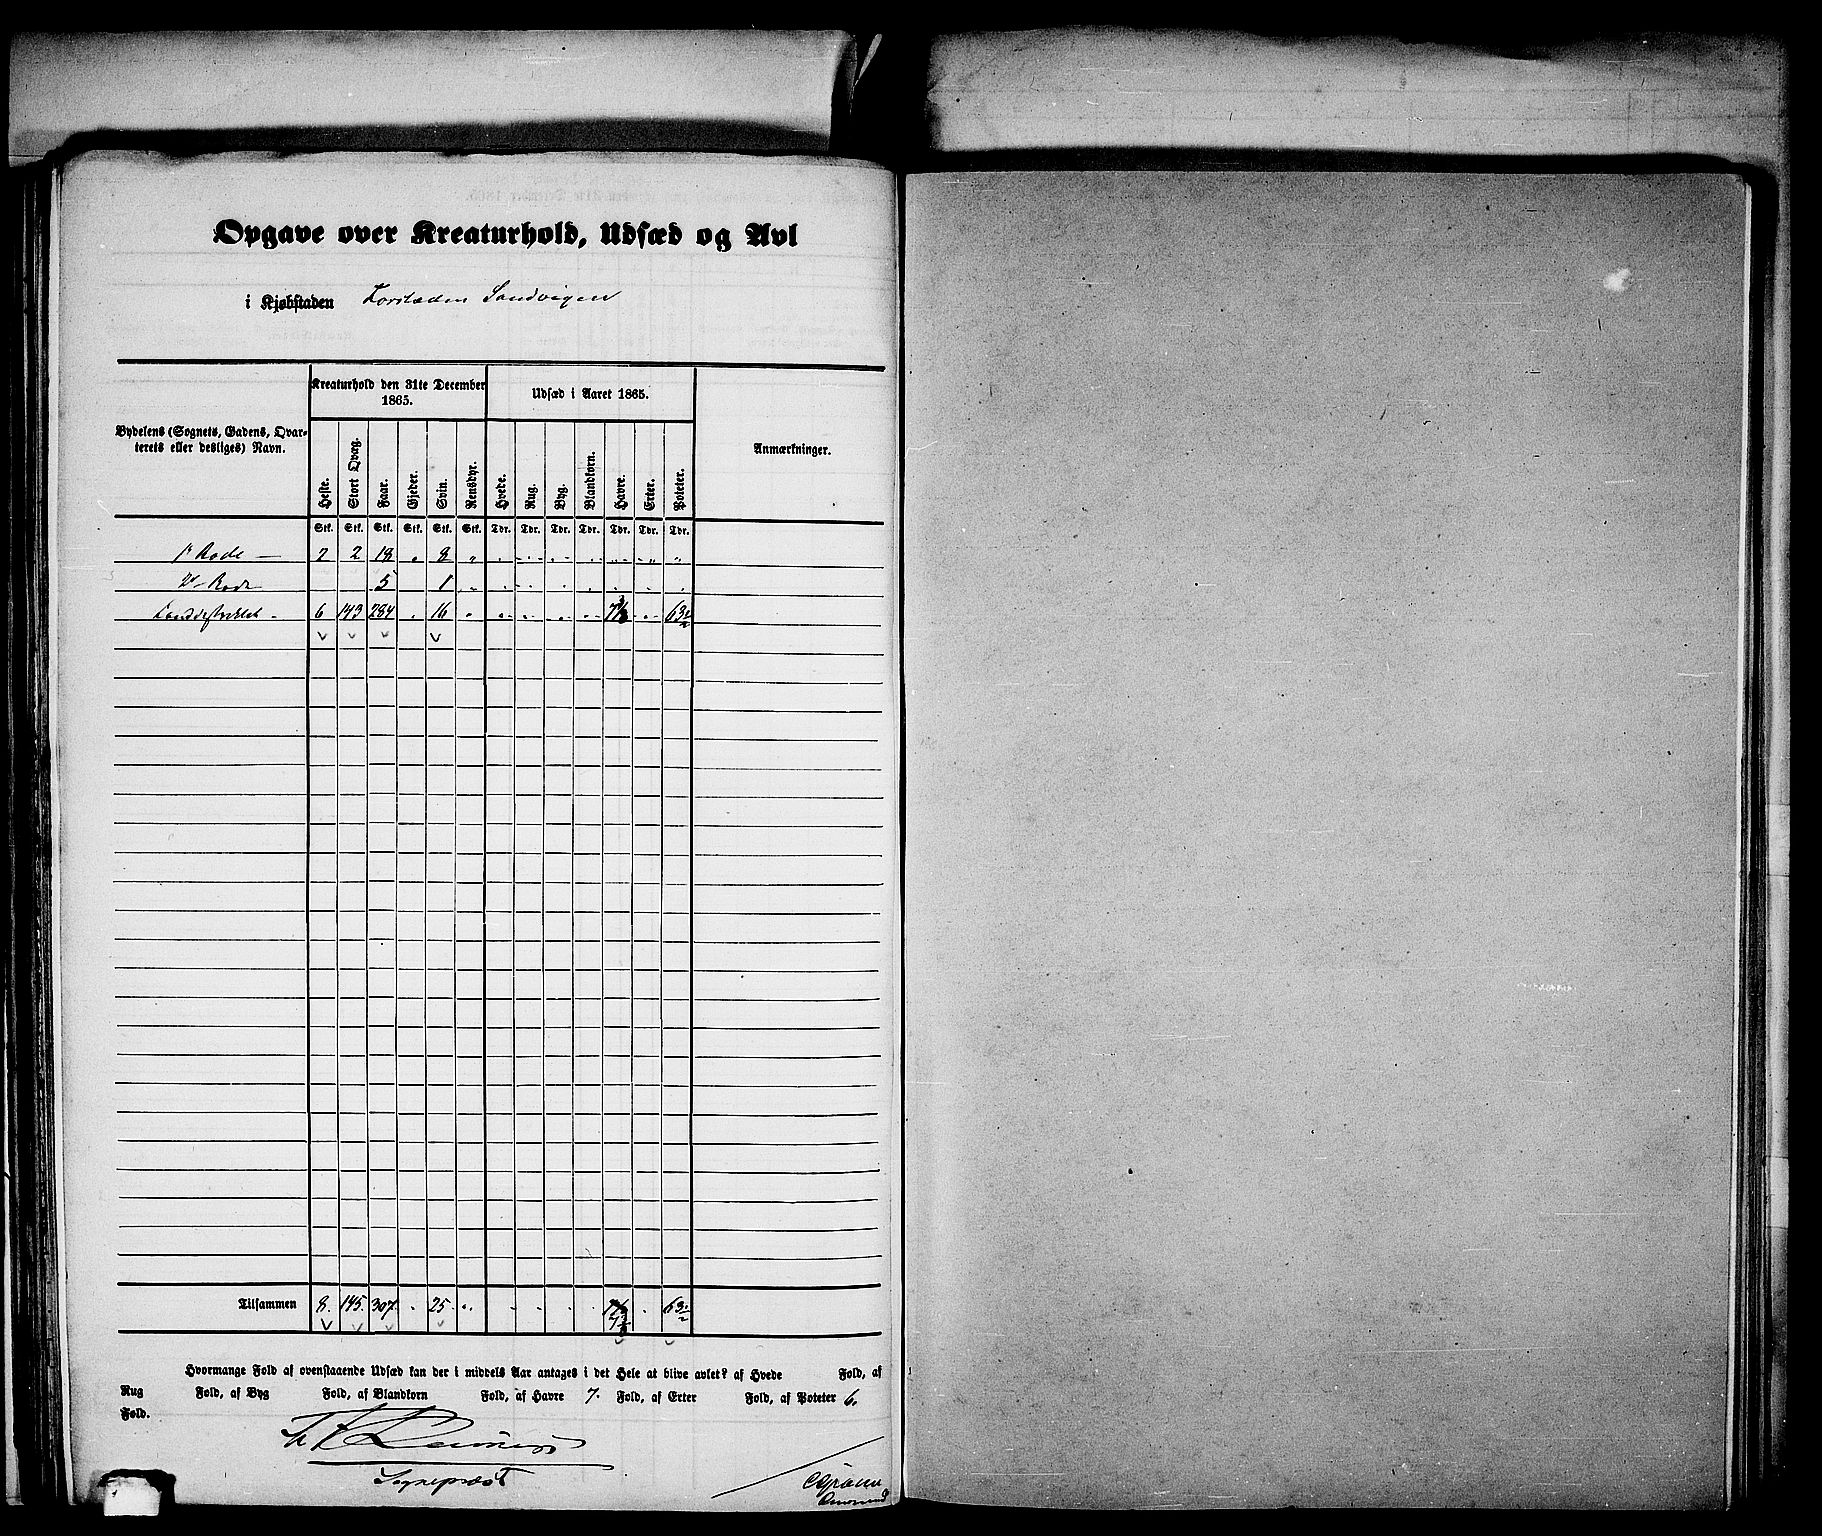 Opgave over Kreaturhold, Udsæd og Avl
i Kjøbstaden Forstaden Sandvigen
Bydelens (Sognets, Gadens, Qvarterets eller desliges) Navn.
Kreaturhold den 31te December 1865.
Udsæd i Aaret 1865.
Anmærkninger.
Heste. Stort Qvæg. Faar. Gjeder. Svin. Rensdyr. Hvede. Rug. Byg. Blandkorn. Havre. Erter. Poteter.
Stk. Stk. Stk. Stk. Stk. Stk. Tdr. Tdr. Tdr. Tdr. Tdr. Tdr. Tdr.
1ste Rode — 2 2 18 " 8 "
2den Rode 5 1
Landdistriktet - 6 143 284 " 16 "
Tilsammen 8. 145. 307. " 25. "
Hvormange Fold af ovenstaaende Udsæd kan der i middels Aar antages i det Hele at blive avlet? af Hvede Fold, af
Rug Fold, af Byg Fold, af Blandkorn Fold, af Havre 7. Fold, af Erter Fold, af Poteter 6.
Fold.
Sognepræst